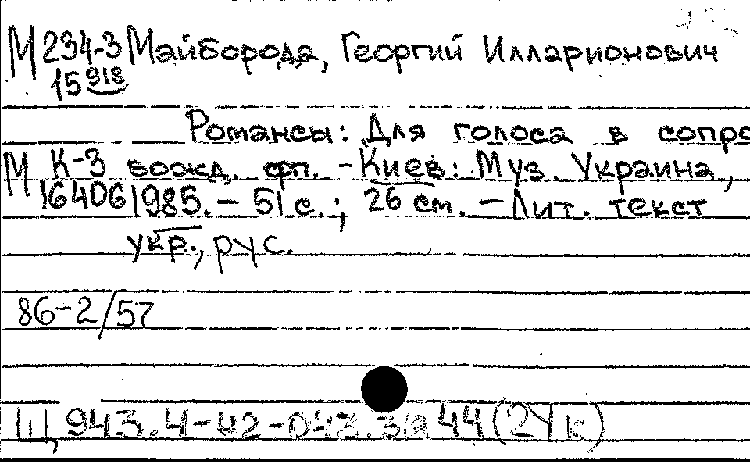 М 234-3 Майборода, Георгий Илларионович
15 918
Романсы: Для голоса в сопро
М К-3 вожд. фп. - Киев: Муз. Украина,
16406 1985. - 51 с.; 26 см. - Лит. текст
укр., рус.
86-2/57
Щ 943.4-42-043.3 я 44